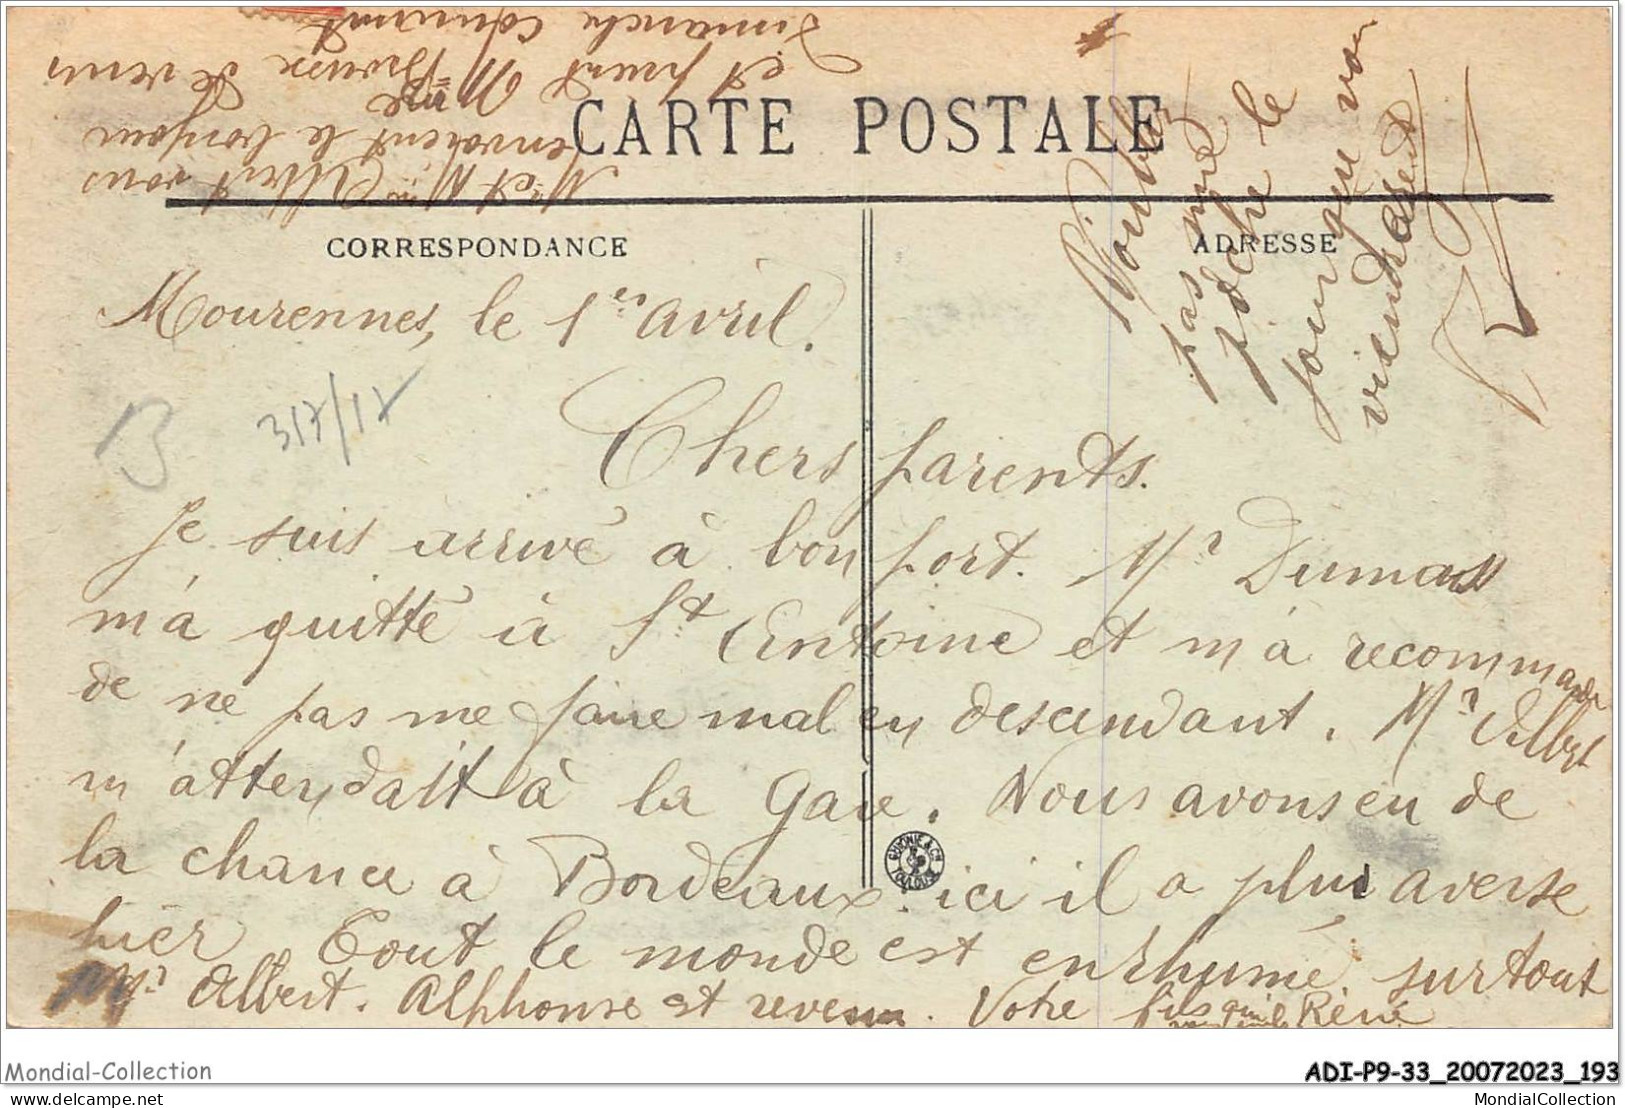 Mr et Mme Albert vous
envoient le bonjour
et prient Mme Brousse de venir
dimanche
CARTE POSTALE
CORRESPONDANCE
ADRESSE
N'oubliez
pas ma
poche le
jour que vous
viendrez
Mourennes, le 1er avril.
317/17
Chers parents.
Je suis arrivé à bon port. Mr Dumas
m'a quitté à St Antoine et m'a recommandé
de ne pas me faire mal en descendant. Mr Albert
m'attendait à la gare. Nous avons eu de
la chance à Bordeaux. ici il a plu averse
hier. Tout le monde est enrhumé surtout
Mr Albert. Alphonse est revenu. Votre fils qui René
GUIONIE & Cie TOULOUSE
Mondial-Collection
ADI-P9-33_20072023_193
delcampe.net
MondialCollection